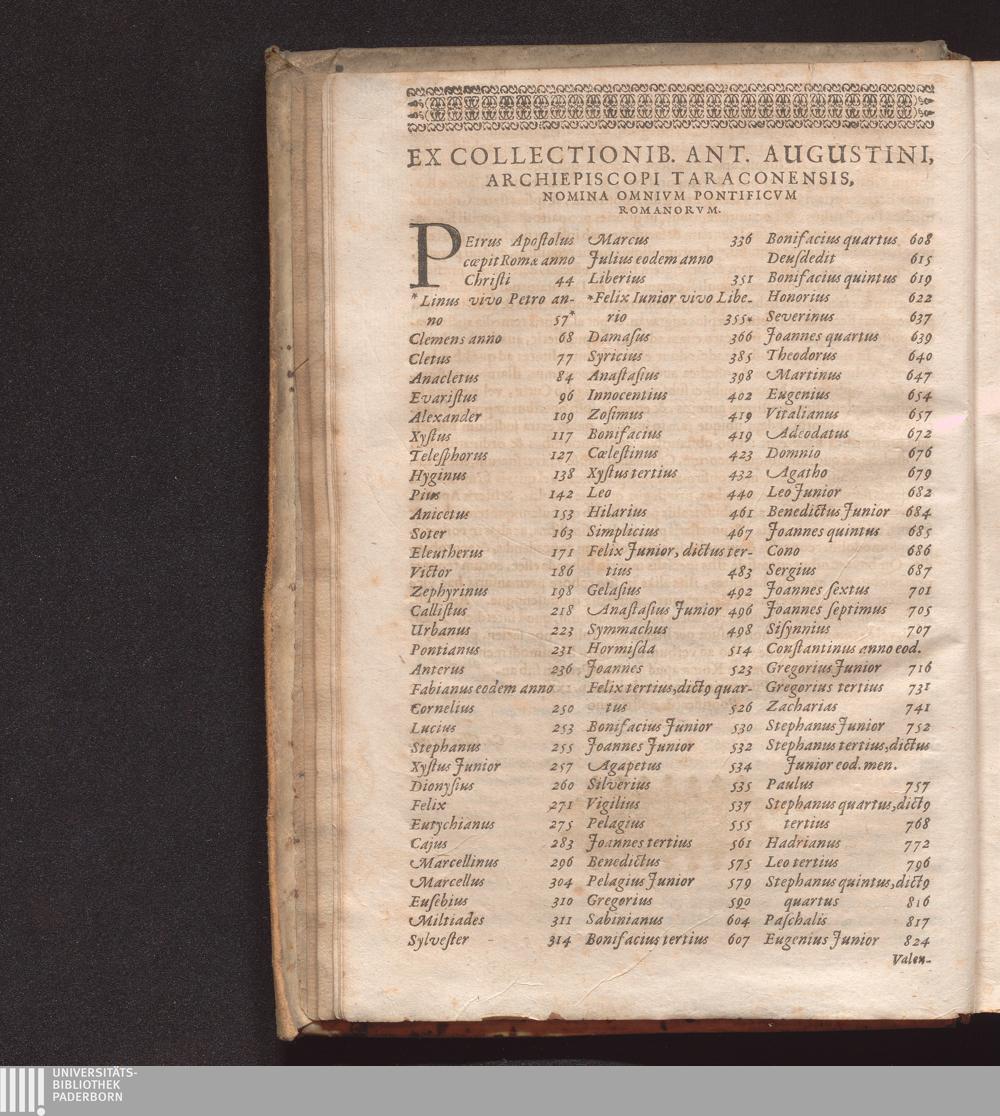 EX COLLECTIONIB. ANT. AUGUSTINI,
ARCHIEPISCOPI TARACONENSIS,
NOMINA OMNIVM PONTIFICVM
ROMANORVM.
PEtrus Apoſtolus
cœpit Romæ anno
Chriſti 44
*Linus vivo Petro an-
no 57*
Clemens anno 68
Cletus 77
Anacletus 84
Evariſtus 96
Alexander 109
Xyſtus 117
Teleſphorus 127
Hyginus 138
Pius 142
Anicetus 153
Soter 163
Eleutherus 171
Victor 186
Zephyrinus 198
Calliſtus 218
Urbanus 223
Pontianus 231
Anterus 236
Fabianus eodem anno
Cornelius 250
Lucius 253
Stephanus 255
Xyſtus Junior 257
Dionyſius 260
Felix 271
Eutychianus 275
Cajus 283
Marcellinus 296
Marcellus 304
Euſebius 310
Miltiades 311
Sylveſter 314
Marcus 336
Julius eodem anno
Liberius 351
*Felix Iunior vivo Libe-
rio 355*
Damaſus 366
Syricius 385
Anaſtaſius 398
Innocentius 402
Zoſimus 419
Bonifacius 419
Cœleſtinus 423
Xyſtus tertius 432
Leo 440
Hilarius 461
Simplicius 467
Felix Junior, dictus ter-
tius 483
Gelaſius 492
Anaſtaſius Junior 496
Symmachus 498
Hormiſda 514
Joannes 523
Felix tertius, dictꝰ quar-
tus 526
Bonifacius Junior 530
Joannes Junior 532
Agapetus 534
Silverius 535
Vigilius 537
Pelagius 555
Joannes tertius 561
Benedictus 575
Pelagius Junior 579
Gregorius 590
Sabinianus 604
Bonifacius tertius 607
Bonifacius quartus 608
Deuſdedit 615
Bonifacius quintus 619
Honorius 622
Severinus 637
Joannes quartus 639
Theodorus 640
Martinus 647
Eugenius 654
Vitalianus 657
Adeodatus 672
Domnio 676
Agatho 679
Leo Junior 682
Benedictus Junior 684
Joannes quintus 685
Cono 686
Sergius 687
Joannes ſextus 701
Joannes ſeptimus 705
Siſynnius 707
Conſtantinus anno eod.
Gregorius Junior 716
Gregorius tertius 731
Zacharias 741
Stephanus Junior 752
Stephanus tertius, dictus
Junior eod. men.
Paulus 757
Stephanus quartus, dictꝰ
tertius 768
Hadrianus 772
Leo tertius 796
Stephanus quintus, dictꝰ
quartus 816
Paſchalis 817
Eugenius Junior 824
Valen-
UNIVERSITÄTS-
BIBLIOTHEK
PADERBORN